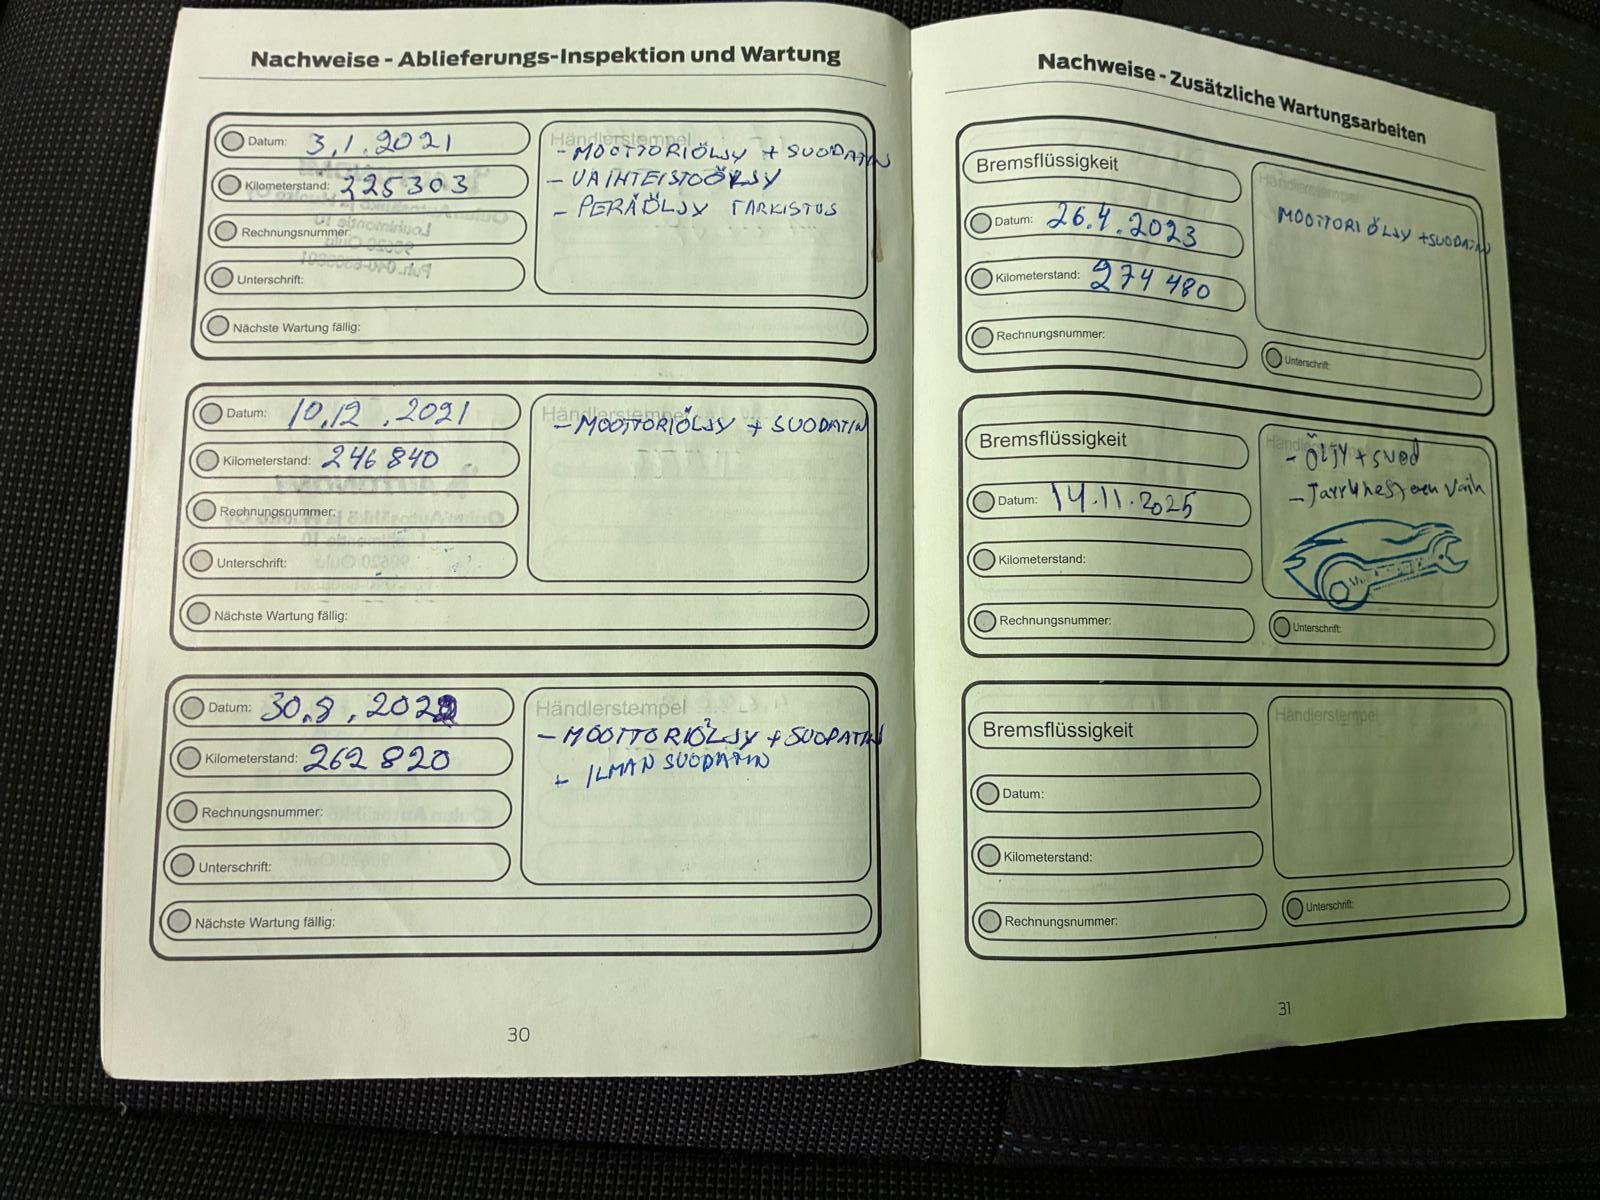 Nachweise - Ablieferungs-Inspektion und Wartung
Datum: 3.1.2021
Kilometerstand: 225303
Rechnungsnummer:
Unterschrift:
Nächste Wartung fällig:
Händlerstempel
- MOOTTORIÖLJY + SUODATIN
- VAIHTEISTOÖLJY
- PERÄÖLJY TARKISTUS
Datum: 10.12.2021
Kilometerstand: 246840
Rechnungsnummer:
Unterschrift:
Nächste Wartung fällig:
Händlerstempel
- MOOTTORIÖLJY + SUODATIN
Datum: 30.8.2022
Kilometerstand: 262820
Rechnungsnummer:
Unterschrift:
Nächste Wartung fällig:
Händlerstempel
- MOOTTORIÖLJY + SUODATIN
+ ILMAN SUODATIN
30
Nachweise - Zusätzliche Wartungsarbeiten
Bremsflüssigkeit
Datum: 26.4.2023
Kilometerstand: 274 480
Rechnungsnummer:
Händlerstempel
MOOTTORIÖLJY + SUODATIN
Unterschrift:
Bremsflüssigkeit
Datum: 14.11.2025
Kilometerstand:
Rechnungsnummer:
Händlerstempel
- Öljy + suod
- Jarrunesteen vaih
Unterschrift:
Bremsflüssigkeit
Datum:
Kilometerstand:
Rechnungsnummer:
Händlerstempel
Unterschrift:
31